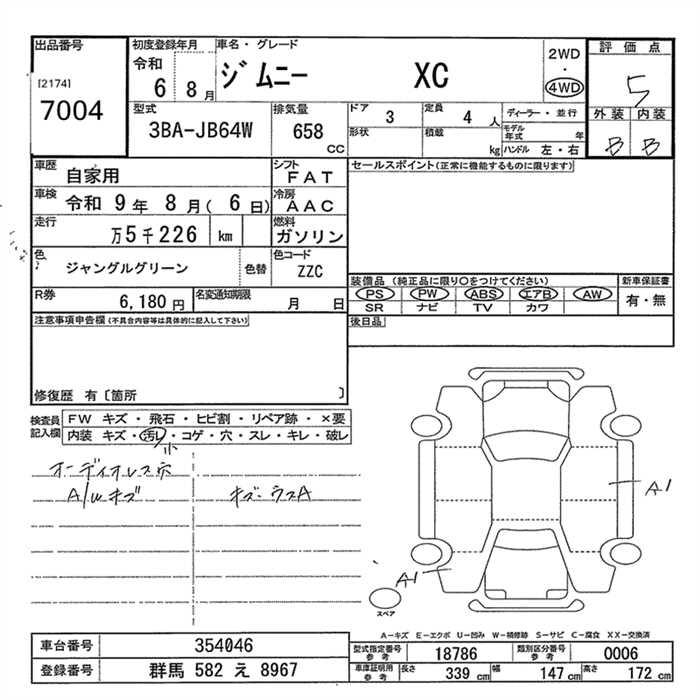 出品番号
[2174]
7004
初度登録年月
令和
6 8月
車名・グレード
ジムニー XC
2WD
・
4WD
評価点
5
外装 内装
B B
型式
3BA-JB64W
排気量
658
CC
ドア
3
定員
4 人
形状
積載
kg
ディーラー・並行
モデル年式 年
ハンドル 左・右
車歴
自家用
シフト
FAT
車検
令和 9年 8月( 6日)
冷房
AAC
走行
万5千226 km
燃料
ガソリン
色
ジャングルグリーン
色替
色コード
ZZC
R券
6,180円
名変通知期限
月 日
セールスポイント(正常に機能するものに限ります)
装備品 (純正品に限り〇をつけてください)
新車保証書
PS PW ABS エアB AW
有・無
SR ナビ TV カワ
後日品
注意事項申告欄(不具合内容等は具体的に記入して下さい)
修復歴 有〔箇所 〕
検査員記入欄
FW キズ・飛石・ヒビ割・リペア跡・×要
内装 キズ・汚レ・コゲ・穴・スレ・キレ・破レ
小
オーディオレス穴
A/Wキズ
キズ・ウスA
A1
A1
スペア
A-キズ E-エクボ U-凹み W-補修跡 S-サビ C-腐食 XX-交換済
車台番号 354046
登録番号 群馬 582 え 8967
型式指定番号 参考 18786
類別区分番号 参考 0006
車庫証明用 参考 長さ 339 cm 幅 147 cm 高さ 172 cm